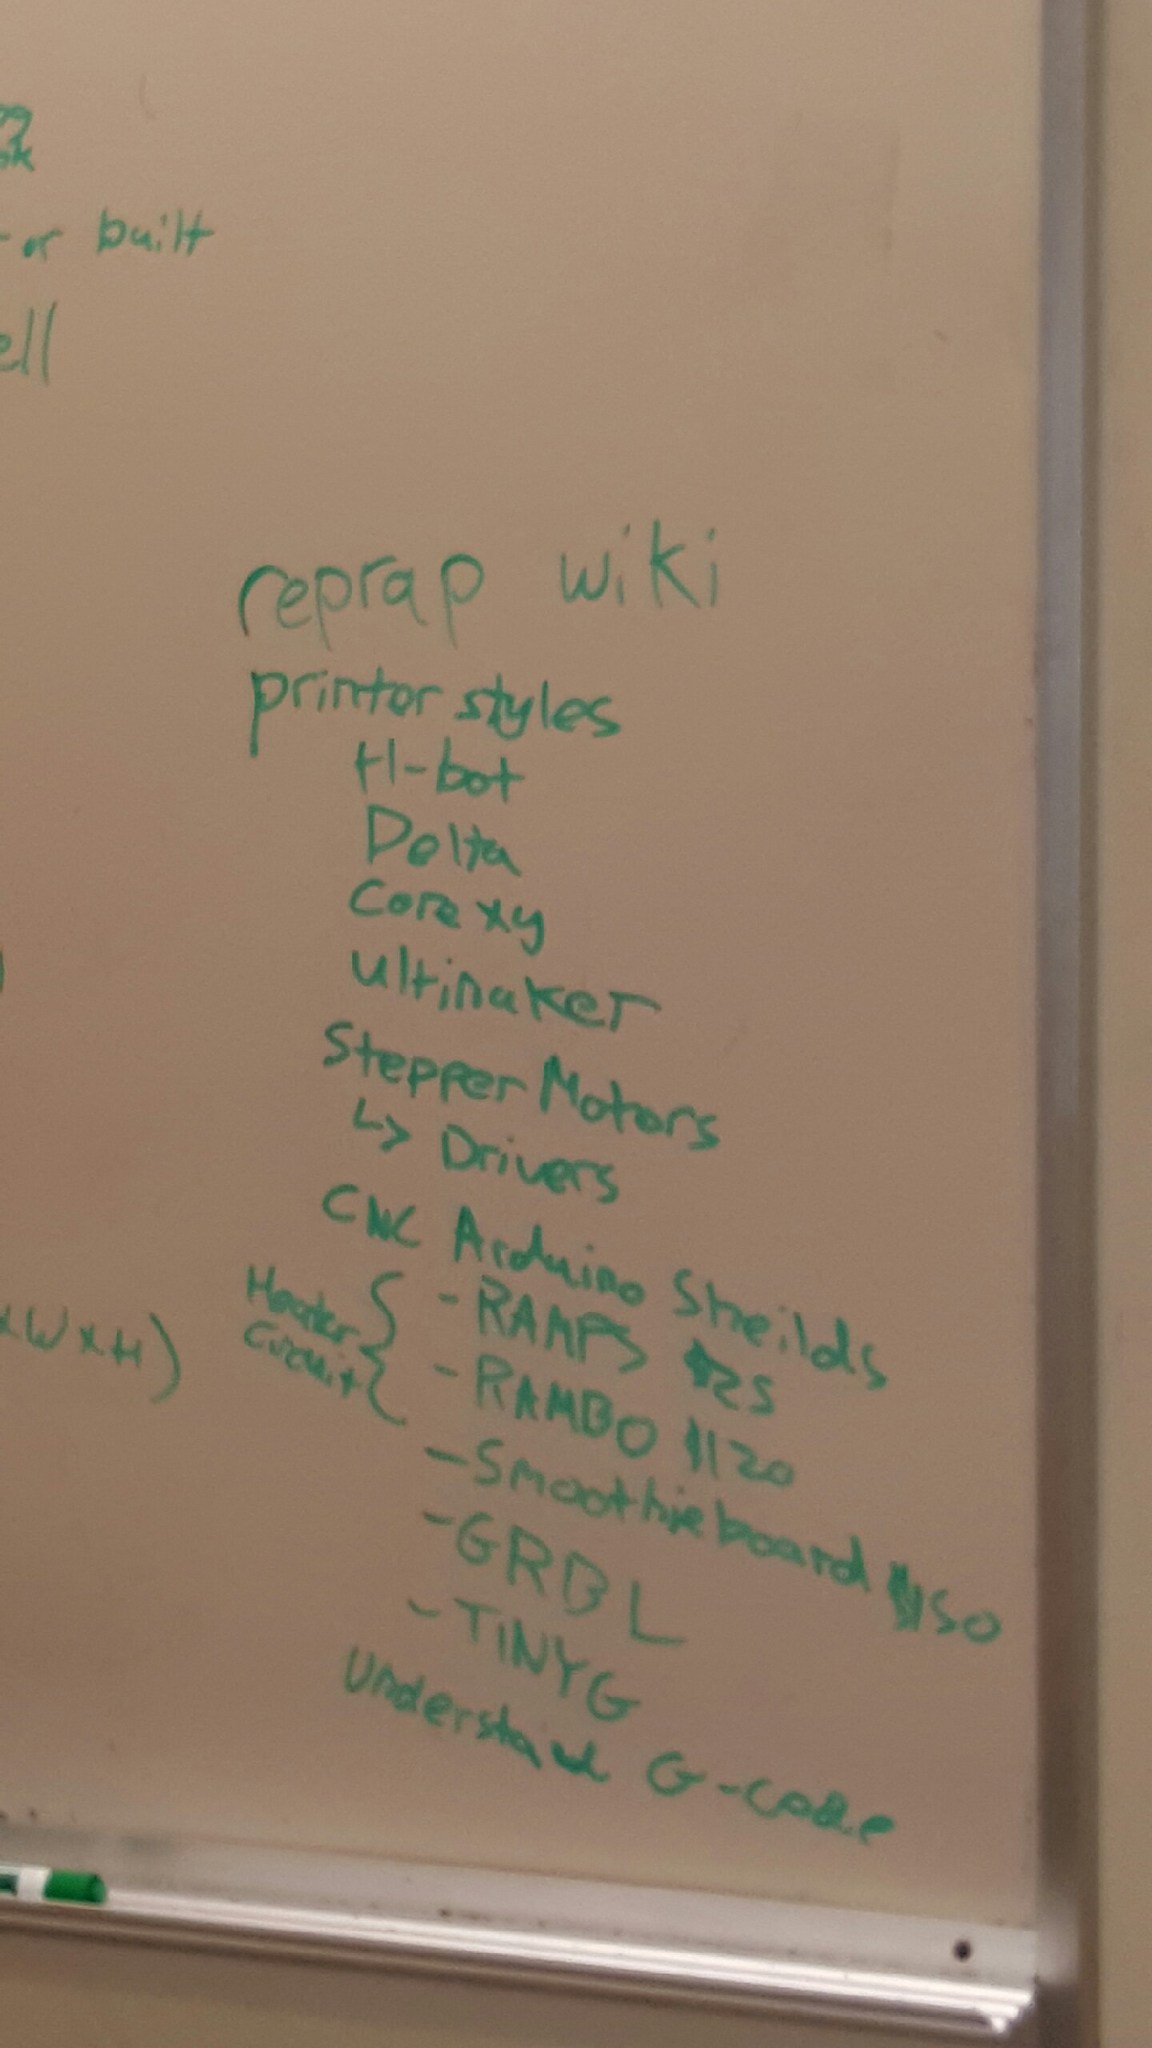 or built
reprap wiki
printer styles
H-bot
Delta
Core xy
ultimaker
Stepper Motors
↳ Drivers
CNC Arduino Sheilds
Heater Circuit { - RAMPS $25
- RAMBO $120
- Smoothieboard $150
- GRBL
- TINYG
Understand G-code
xWxH)